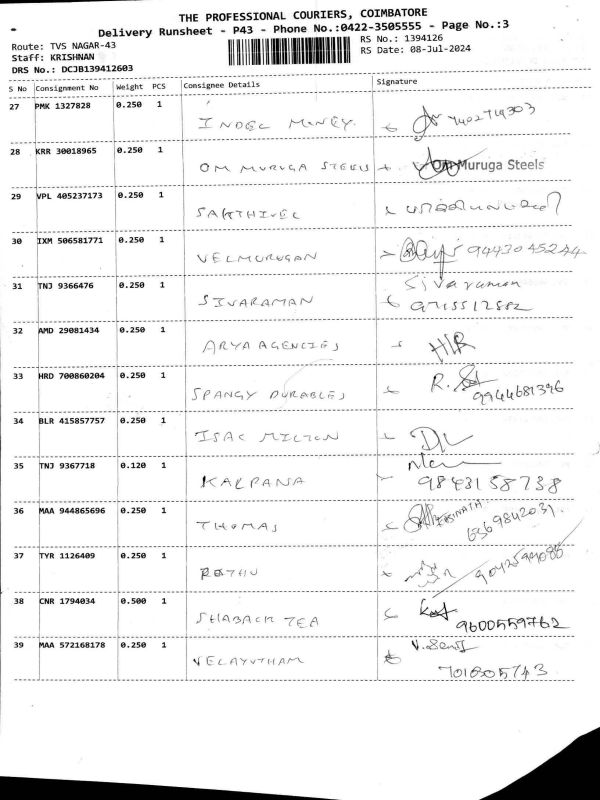 THE PROFESSIONAL COURIERS, COIMBATORE
Delivery Runsheet - P43 - Phone No.:0422-3505555 - Page No.:3
Route: TVS NAGAR-43 RS No.: 1394126
Staff: KRISHNAN RS Date: 08-Jul-2024
DRS No.: DCJB139412603
S No Consignment No Weight PCS Consignee Details Signature
27 PMK 1327828 0.250 1
INDEL MONEY
28 KRR 30018965 0.250 1
OM MURUGA STEELS Om Muruga Steels
29 VPL 405237173 0.250 1
SAKTHIVEL
30 IXM 506581771 0.250 1
VELMURUGAN 9443045244
31 TNJ 9366476 0.250 1 Sivaraman
SIVARAMAN
32 AMD 29081434 0.250 1
ARYA AGENCIES
33 HRD 700860204 0.250 1
SPANGY DURABLES R. 9944681396
34 BLR 415857757 0.250 1
ISAC MILTON
35 TNJ 9367718 0.120 1
KALPANA 9843158738
36 MAA 944865696 0.250 1
THOMAS 6369842031
37 TYR 1126409 0.250 1
38 CNR 1794034 0.500 1
SHABACK TEA 9600559762
39 MAA 572168178 0.250 1
VELAYUTHAM